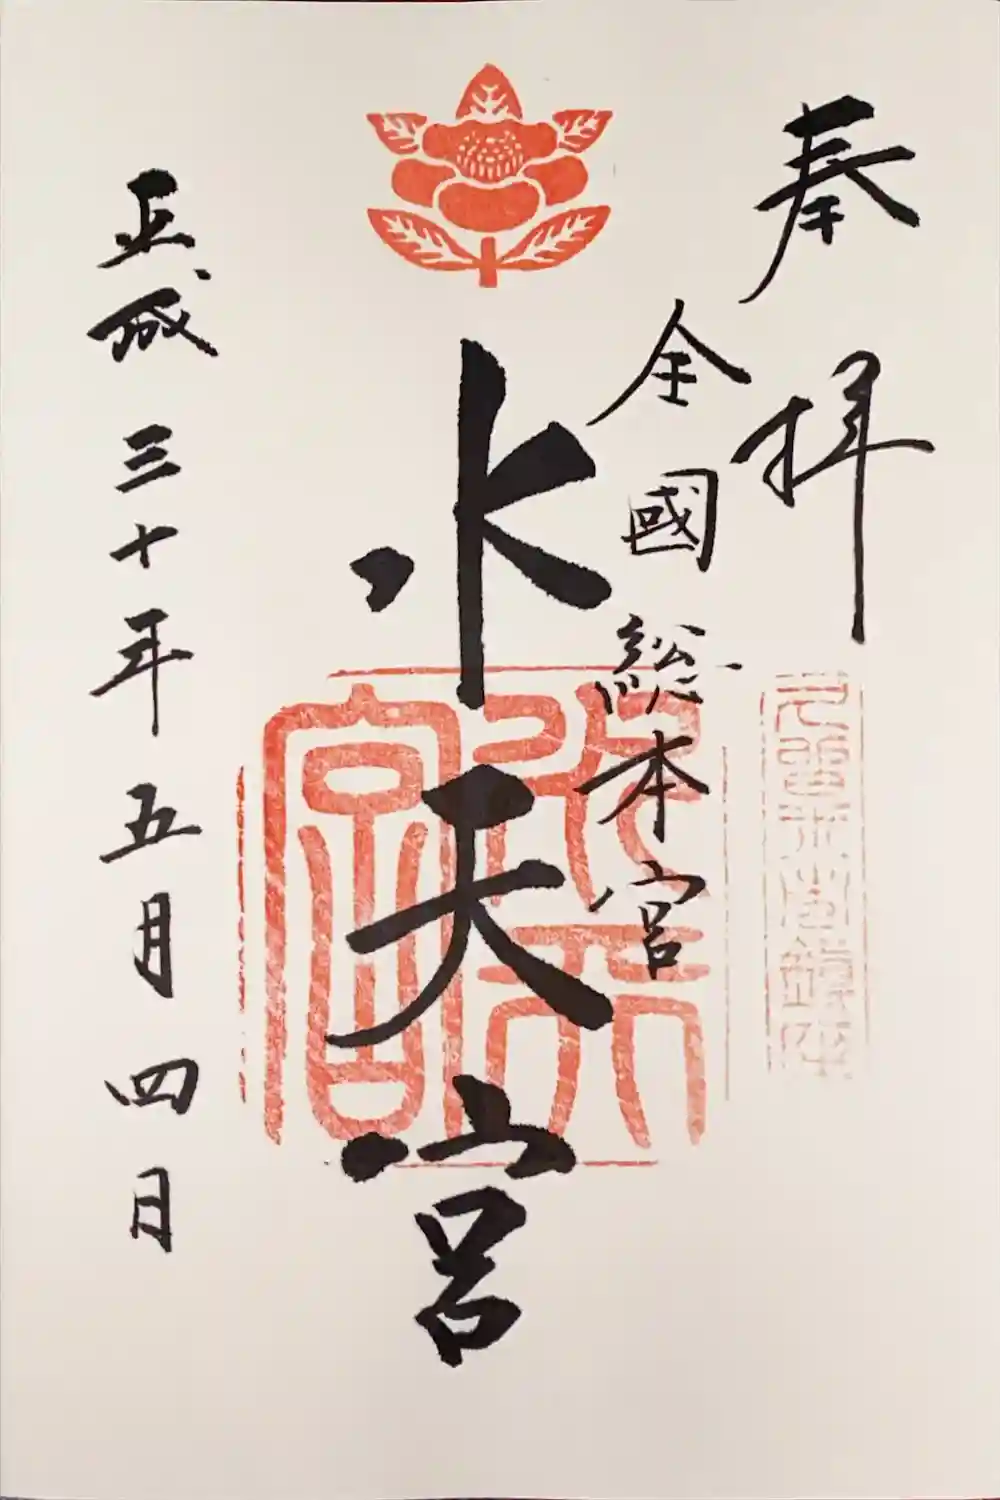 奉拝
全國総本宮
水天宮
水天宮
平成三十年五月四日